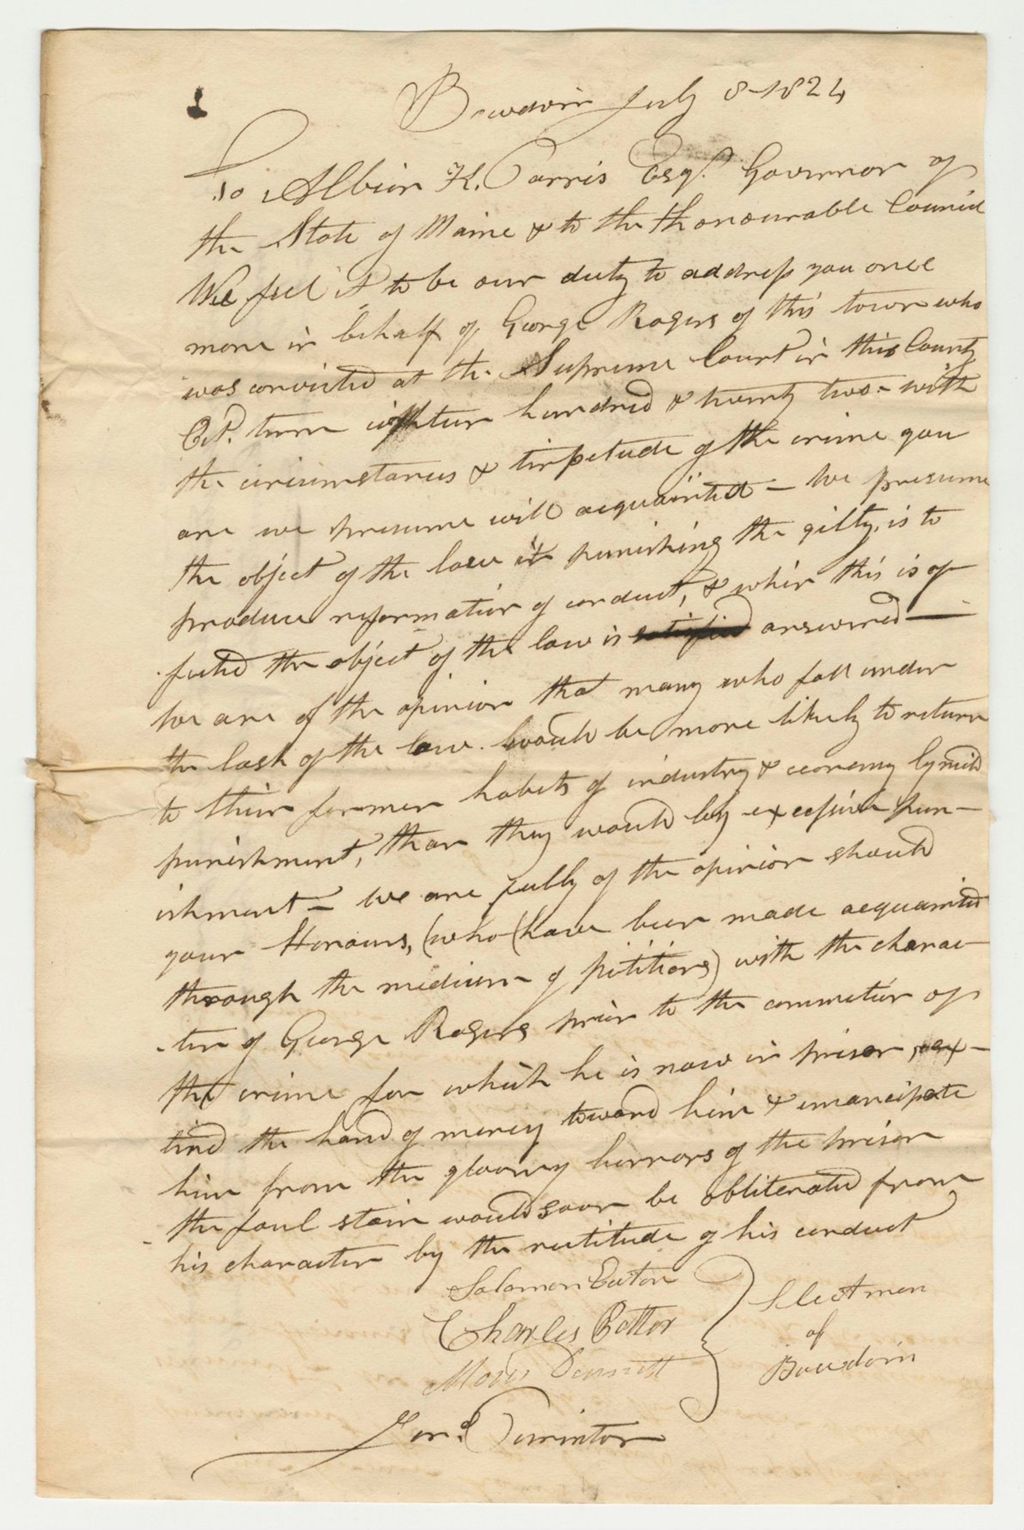 Bowdoin July 8 1824
To Albion K. Parris Esqr. Governor of
the State of Maine & to the Honourable Council
We feel it to be our duty to address you once
more in behalf of George Rogers of this town who
was convicted at the Supreme Court in this County
Oct. turm eighteen hundred & twenty two - with
the circumstances & tirpetude of the crime you
are we presume will acquainted - We presume
the object of the law in punishing the gilty, is to
produce reformation of conduct, & when this is ef
fected the object of the law is satisfied answered —
We are of the opinion that many who fall under
the lash of the law would be more likely to return
to their former habits of industry & economy by mild
punishment, than they would by excessive pun-
ishment - We are fully of the opinion should
your Honours, (who have been made acquainted
through the medium of pititions) with the charac-
-ter of George Rogers prior to the commition of
the crime for which he is now in prison, ex-
tend the hand of mercy toward him & emancipate
him from the gloomy horrors of the prison
the foul stain would soon be obliterated from
his character by the rectitude of his conduct
Solomon Eaton
Charles Potter
Moses Dennett
Selectmen
of
Bowdoin